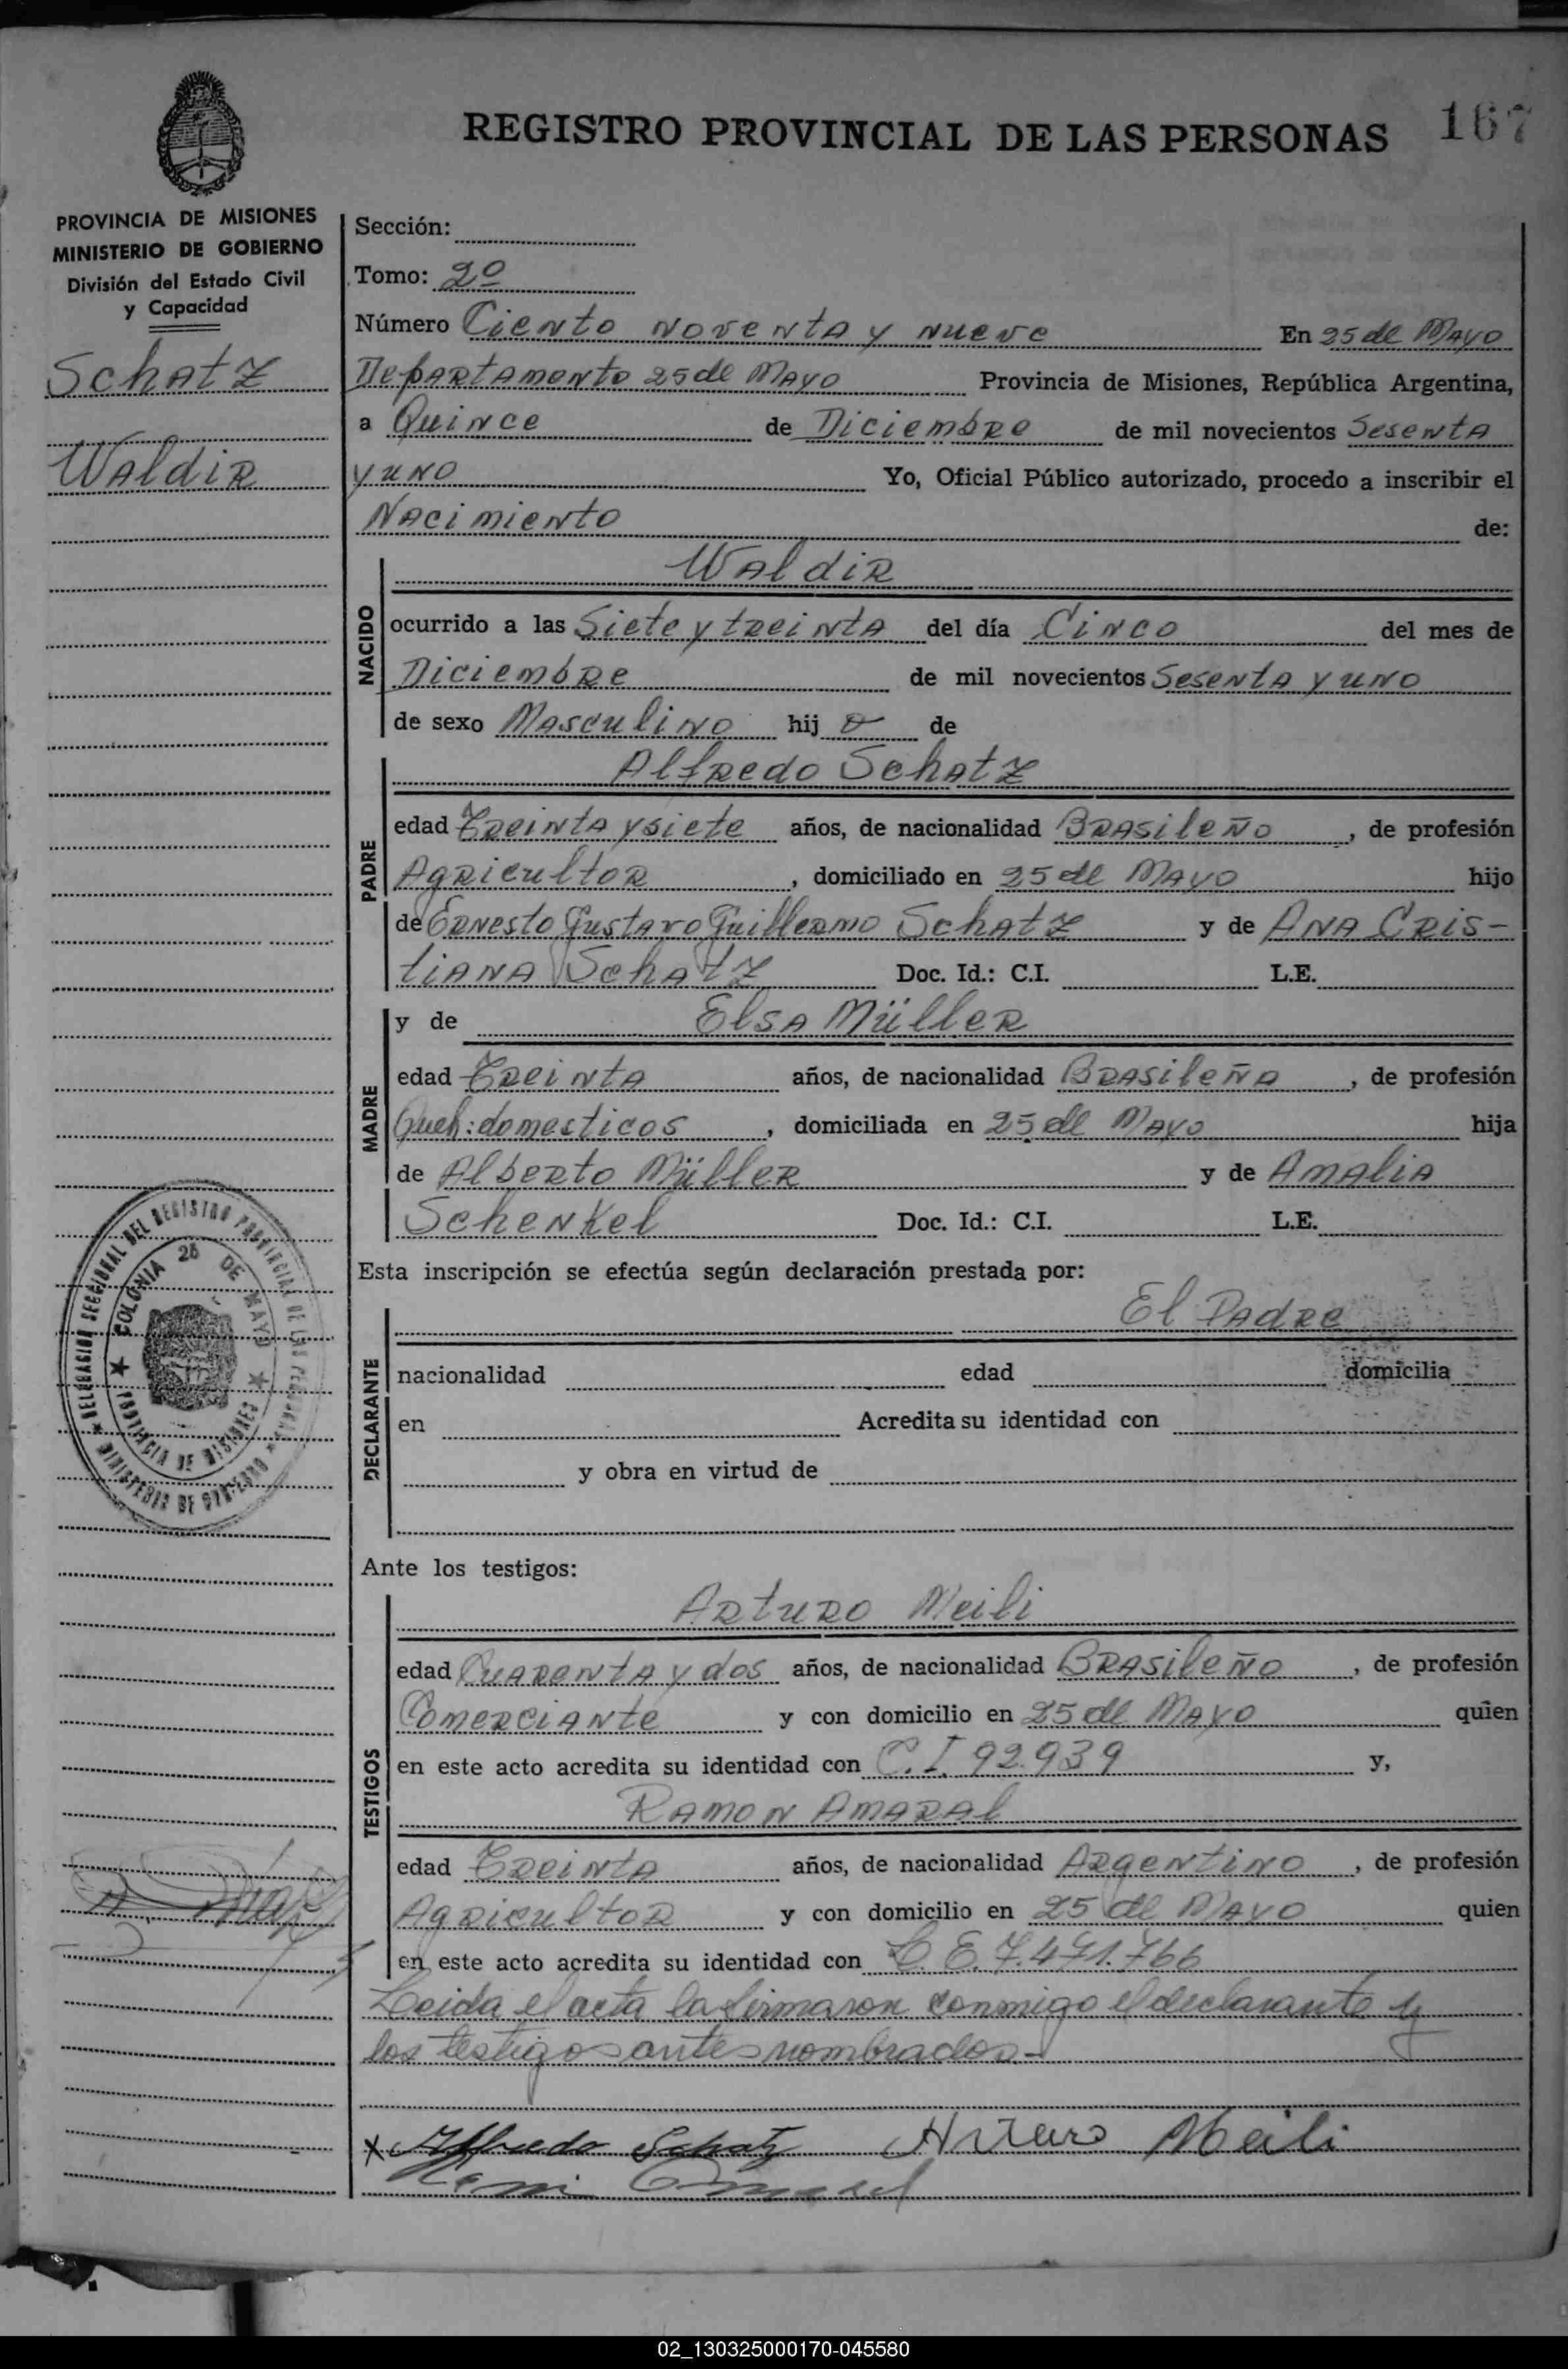 REGISTRO PROVINCIAL DE LAS PERSONAS 167
PROVINCIA DE MISIONES
MINISTERIO DE GOBIERNO
División del Estado Civil
y Capacidad
Schatz
Waldir
Sección:
Tomo: 2º
Número Ciento noventa y nueve En 25 de Mayo
Departamento 25 de Mayo Provincia de Misiones, República Argentina,
a Quince de Diciembre de mil novecientos Sesenta
y uno Yo, Oficial Público autorizado, procedo a inscribir el
Nacimiento de:
NACIDO
Waldir
ocurrido a las Siete y treinta del día Cinco del mes de
Diciembre de mil novecientos Sesenta y uno
de sexo Masculino hij o de
PADRE
Alfredo Schatz
edad Treinta y siete años, de nacionalidad Brasileño, de profesión
Agricultor, domiciliado en 25 de Mayo hijo
de Ernesto Gustavo Guillermo Schatz y de Ana Cris-
tiana Schatz Doc. Id.: C.I. L.E.
MADRE
y de Elsa Müller
edad Treinta años, de nacionalidad Brasileña, de profesión
Queh: domesticos, domiciliada en 25 de Mayo hija
de Alberto Müller y de Amalia
Schenkel Doc. Id.: C.I. L.E.
Esta inscripción se efectúa según declaración prestada por:
DECLARANTE
El Padre
nacionalidad edad domicilia
en Acredita su identidad con
y obra en virtud de
DELEGACION SECCIONAL DEL REGISTRO PROVINCIAL DE LAS PERSONAS
COLONIA 25 DE MAYO
PROVINCIA DE MISIONES
MINISTERIO DE GOBIERNO
Ante los testigos:
TESTIGOS
Arturo Meili
edad Cuarenta y dos años, de nacionalidad Brasileño, de profesión
Comerciante y con domicilio en 25 de Mayo quien
en este acto acredita su identidad con C.I. 92.939 y,
Ramon Amaral
edad Treinta años, de nacionalidad Argentino, de profesión
Agricultor y con domicilio en 25 de Mayo quien
en este acto acredita su identidad con L.E. 7.471.766
Leida el acta la firmaron conmigo el declarante y
los testigos antes nombrados.-
x Alfredo Schatz Arturo Meili
02_130325000170-045580